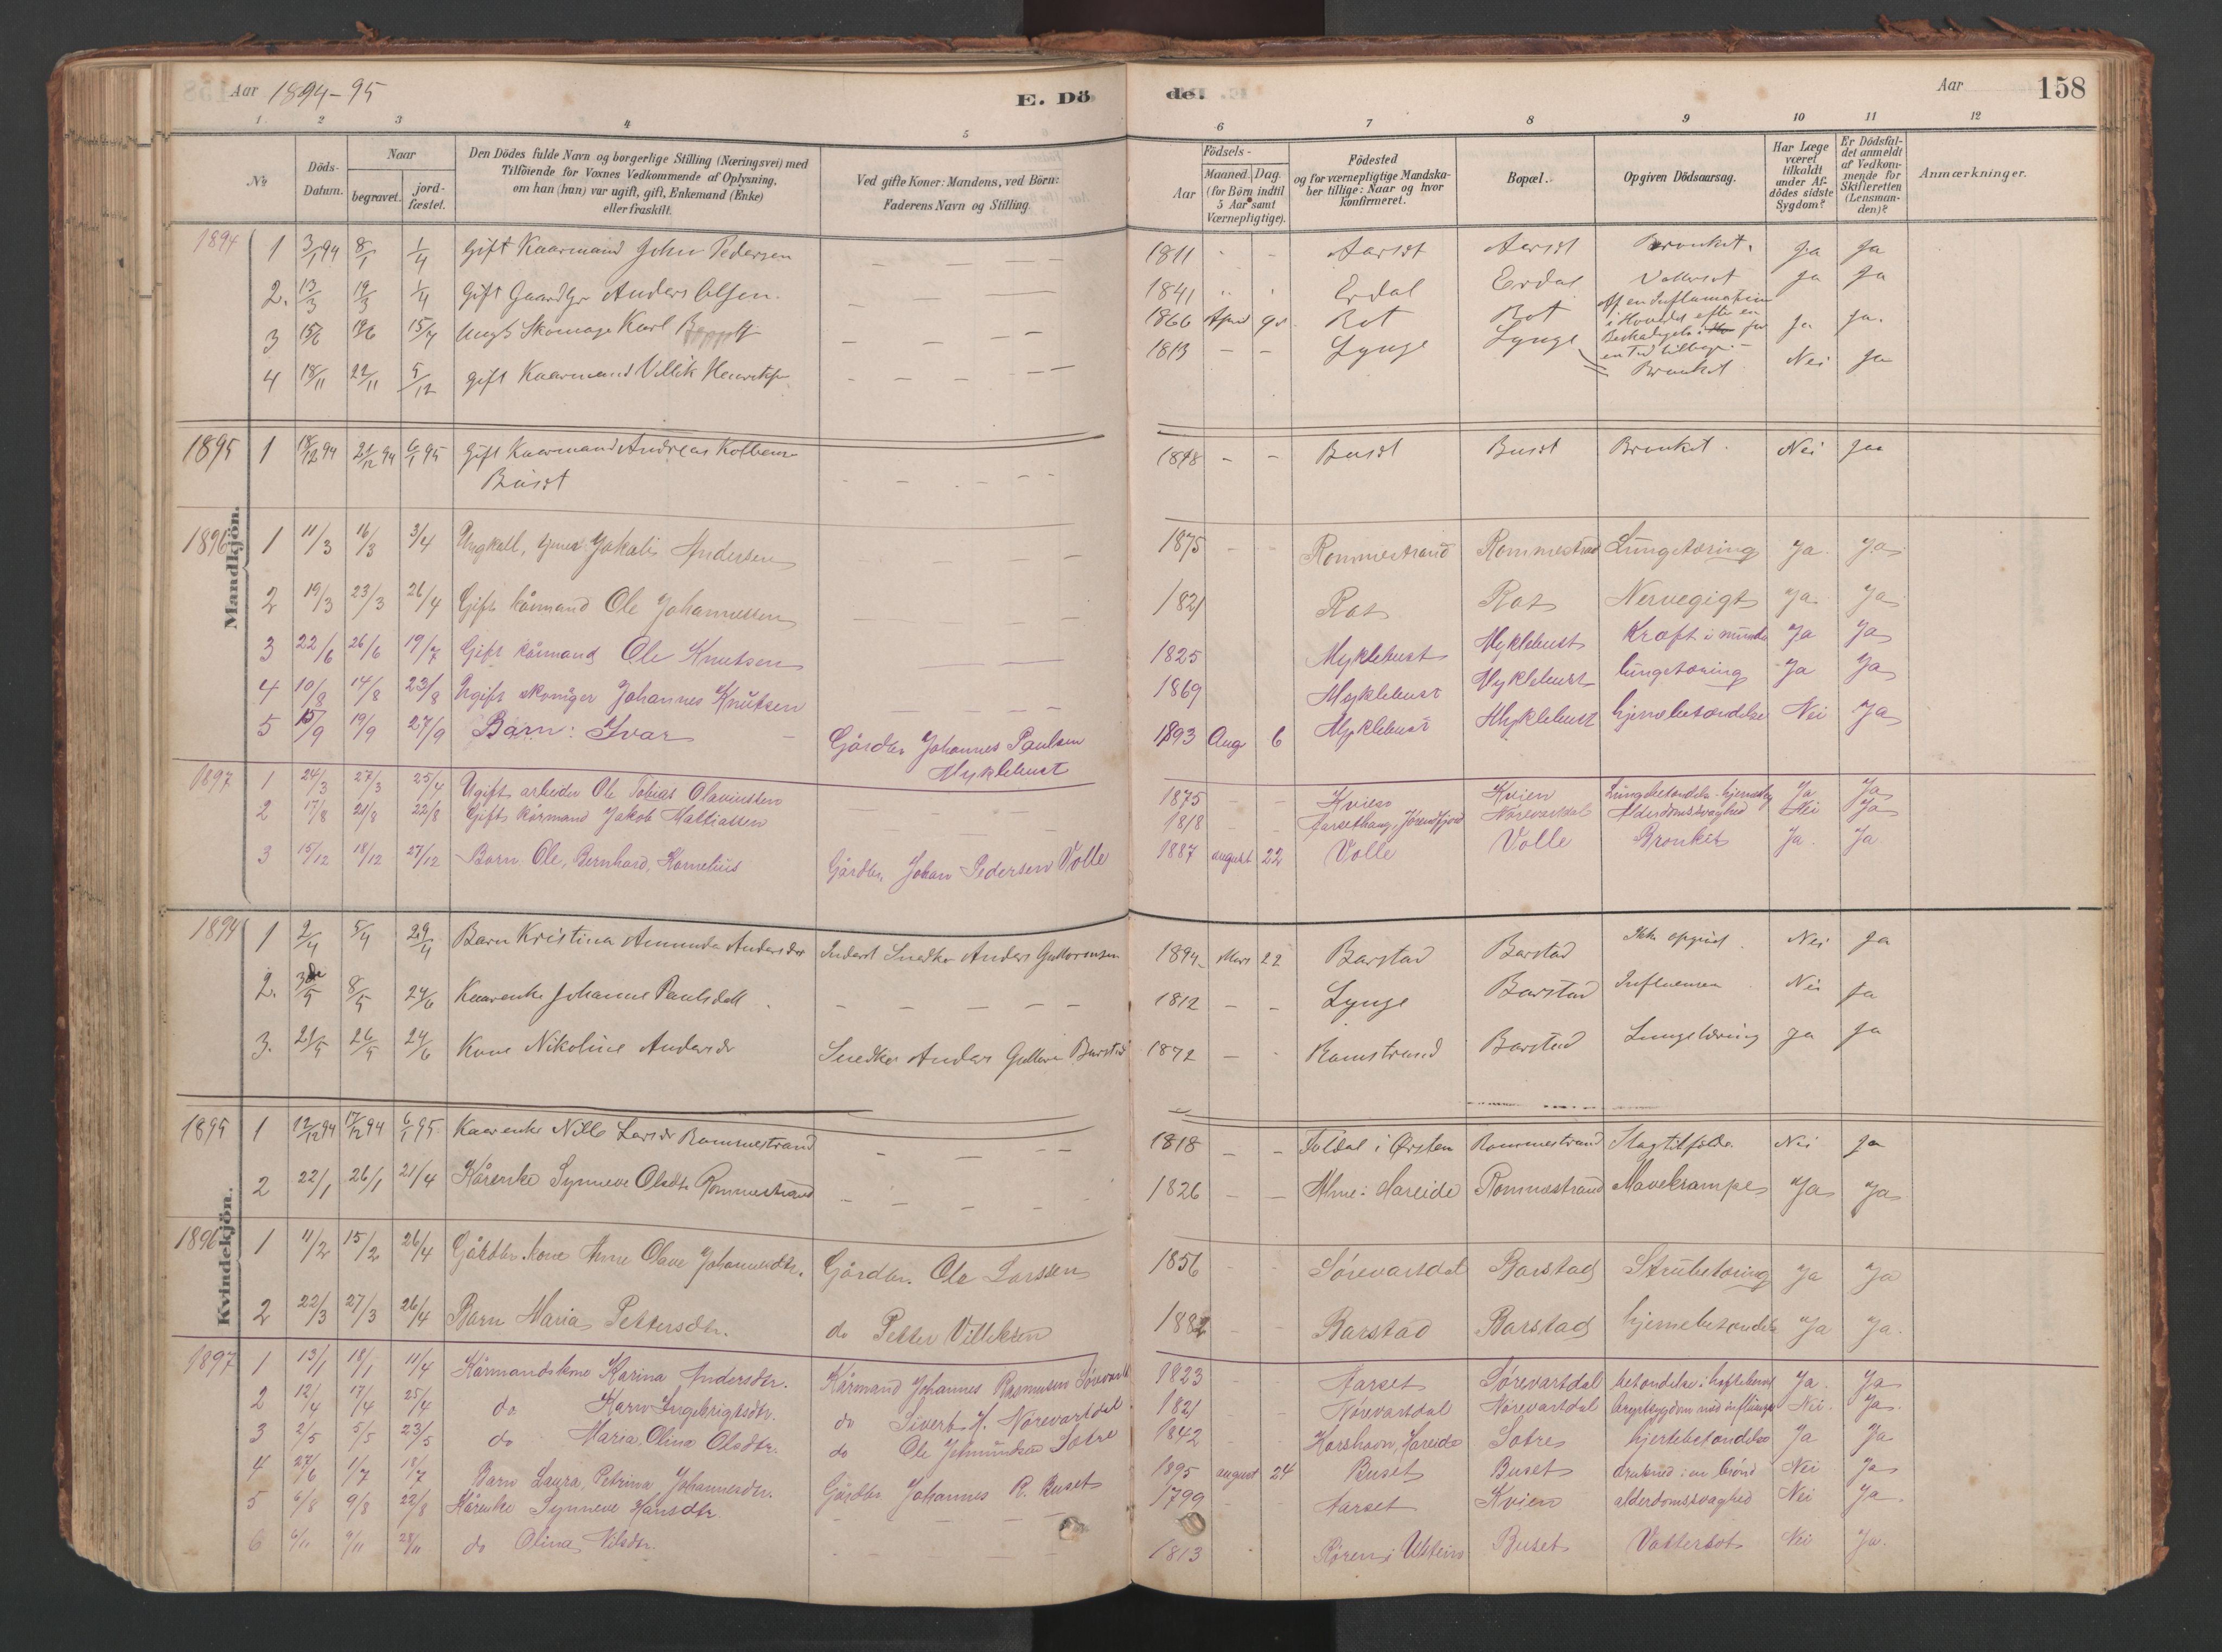 Aar 1894-95
E. Dö
de.
Aar
158
1 2 3 4 5 6 7 8 9 10 11 12
No
Döds-Datum.
Naar
begravet.
jord-fæstet.
Den Dödes fulde Navn og borgerlige Stilling (Næringsvei) med
Tilföiende for Voxnes Vedkommende af Oplysning,
om han (hun) var ugift, gift, Enkemand (Enke)
eller fraskilt.
Ved gifte Koner: Mandens, ved Börn:
Faderens Navn og Stilling.
Födsels-
Aar
Maaned. Dag.
(for Börn indtil
5 Aar samt
Værnepligtige).
Födested
og for værnepligtige Mandska-
ber tillige: Naar og hvor
konfirmeret.
Bopæl.
Opgiven Dödsaarsag.
Har Læge
været
tilkaldt
under Af-
dödes sidste
Sygdom?
Er Dödsfal-
det anmeldt
af Vedkom-
mende for
Skifteretten
(Lensman-
den)?
Anmærkninger.
Mandkjön.
1894 1 3/1 94 8/1 1/4 Gift Kaarmand John Pedersen — — — — 1811 - - Aarset Aarset Bronkit. Ja Ja
2. 13/3 19/3 1/4 Gift Gaardbr Anders Olsen. — — — — 1841 Erdal Erdal Vattersot Ja Ja
3 15/6 19/6 15/7 Ungk Skomager Karl — — — — 1866 April 9 Rot Rot Af en Inflamation
i Hovedet efter en
for
en Tid tilbage. Ja Ja.
4 18/11 22/11 9/12 gift Kaarmand Villik — — — — 1813 - - Lynge Lynge Bronkit Nei Ja
1895 1 18/12 94 21/12 94 6/1 95 Gift Kaarmand Andreas
Buset — — — — 1818 - - Buset Buset Bronkit. Nei Jaa
1896 1 11/3 16/3 3/4 Ungkall, Jakob Andersen — — — — 1875 - - Rommestrand Rommestrand Lungetæring Ja. Ja
2 19/3 23/3 26/4 Gift kårmand Ole Johannessen 1821 Rot Rot Nervegigt Ja Ja
3 22/6 26/6 19/7 Gift kårmand Ole Knutsen — — — 1825 Myklebust Myklebust Kræft i munde Ja Ja
4 10/8 14/8 23/8 Ugift skomager Johannes Knutsen — — — — 1869 Myklebust Myklebust lungetæring Ja Ja
5 15/9 19/9 27/9 Barn: Ivar — Gårdbr. Johannes Paulsen
Myklebust 1893 Aug 6 Myklebust Myklebust hjernebetændelse Nei Ja
1897 1 24/3 27/3 25/4 Ugift arbeider Ole Tobias Olaviussen 1875 - - Kvien Kvien Lungebetændelse - Ja Ja
2 17/8 21/8 22/8 Gift kårmand Jakob Mattiassen 1818 - - Aarsethaug, Jørundfjord Nørevartdal Alderdomssvaghed Nei Ja
3 15/12 18/12 27/12 Barn Ole, Bernhard, Kornelius Gårdbr. Johan Pedersen Volle 1887 august 22 Volle Volle Bronkit Ja. Ja.
Kvindekjön.
1894 1 2/4 5/4 29/4 Barn Kristina Amunda Andersdtr Inderst Snedker Anders Guttormsen 1894 Mars 22 Barstad Barstad Ikke opgivet. Nei Ja
2. 3/5 8/5 24/6 Kaarenke Johanne Paulsdatt. — — — — 1812 - - Lynge Barstad Influensa. Nei Ja
3. 21/5 26/5 24/6 Kone Nikoline Andersdr Snedker Anders Guttorm Barstad 1872 - - Romstrand Barstad Lungetæring Ja Ja
1895 1 12/12 94 17/12 94 6/1 95 Kaarenke Nille Larsdr Rommestrand — — — — 1818 - - Foldal i Ørsten Rommestrand Slagtilfælde Nei Ja
2 22/1 26/1 21/4 Kårenke Synneve Olsdtr Rommestrand — — — — 1826 - - Alme i Hareide Rommestrand Mavekrampe Ja Ja
1896 1 11/2 15/2 26/4 Gårdbr. kone Anne Olave Johannesdtr. Gårdbr. Ole Larssen 1856 - - Sørevartdal Barstad Strubetæring Ja Ja
2 22/3 27/3 26/4 Barn Maria Pettersdtr. do Petter Villiksen 1882 - - Barstad Barstad hjernebetændelse Ja Ja.
1897 1 13/1 18/1 11/4 Kårmandskone Karina Andersdtr. Kårmand Johannes Rasmusen Sørevartd 1823 Aarset Sørevartdal betændelse i hofteben Ja. Ja
2 12/4 17/4 25/4 do Karn Ingebrigtsdtr. do Sivert N. Nørevartdal 1821 Nørevartdal Nørevartdal brystsygdom med influensa Nei. Ja.
3 2/5 5/5 23/5 do Maria, Olina Olsdtr. do Ole Sætre 1842 Korshavn, Hareide Sætre hjertebetændelse Ja Ja
4 27/6 1/7 18/7 Barn Laura, Petrina Johannesdtr. Gårdbr. Johannes R. Buset 1895 august 24 Buset Buset druknet i en brønd Nei Ja
5 6/8 9/8 22/8 Kårenke Synneve Hansdtr — — — — 1799 - - Aarset Kvien alderdomssvaghed Nei Ja.
6 6/11 9/11 28/11 do Olina Nilsdtr. — — — — 1813 Røren i Ulstein Buset Vattersot Nei Ja.